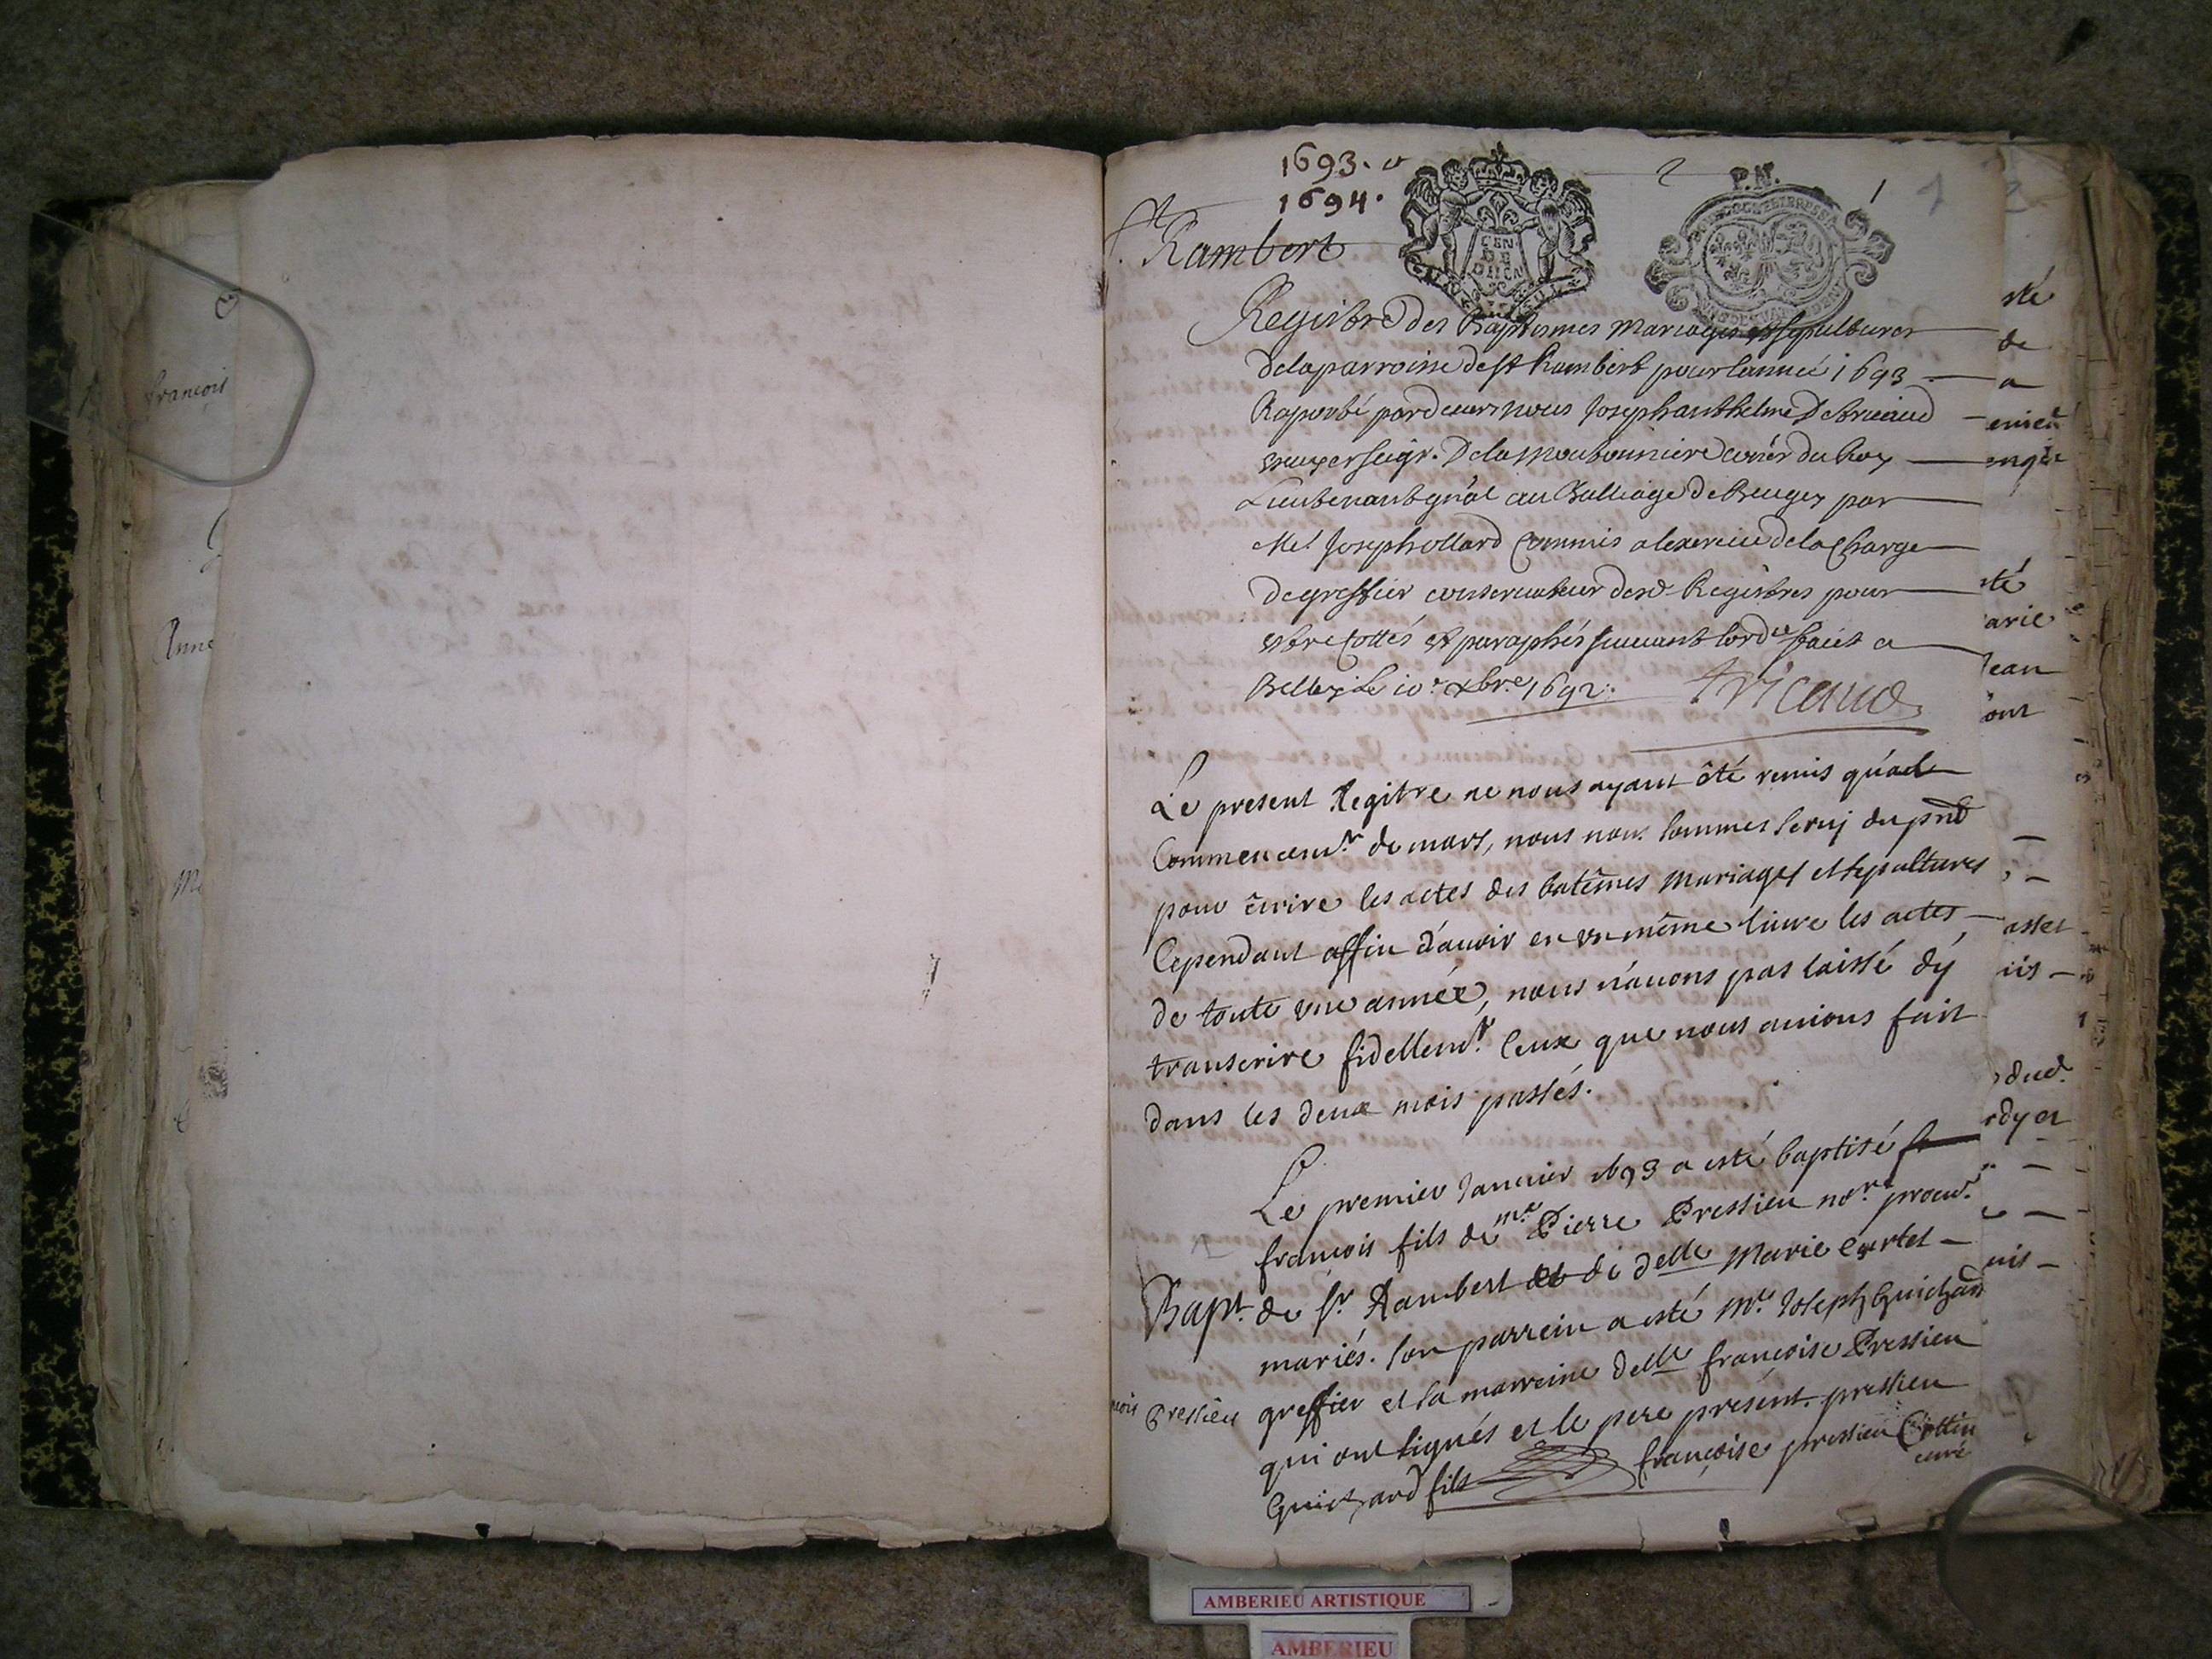 1693. &
1694.
St Rambert
GEN
DE
DIION
P.N.
2
1
Registre des Baptesmes mariages et sepultures
de la parroisse de st Rambert pour lannée 1693
Raporté pardeuant nous Joseph anthelme De tricaud
escuyer seigr. De la moutonniere coner du Roy
Lieutenant gnâl au Balliage de Beugey par
Me. Joseph ollard Commis a lexercice de la Charge
de greffier conseruateur desd. Registres pour
estre Cottés et paraphés suiuant lordce faict a
Belley Le 10e xbre. 1692.
tricaud
Le present Regitre ne nous ayant êté remis qu'au
Commencemt. de mars, nous nous sommes seruj du pnt
pour êcrire les actes des batêmes mariages et sepultures
Cependant affin d'auoir en un même liure les actes
de toute une année, nous n'auons pas laissé d'y
transcrire fidellemt. ceux que nous auions fait
dans les deux mois passés.
Le premier Januier 1693 a esté baptisé
françois fils de me Pierre Pressieu nore. procur.
Bapt. de st Rambert et de delle Marie Curtet
mariés. son parrein a esté Me. Joseph Guichard
greffier et sa marreine delle françoise Pressieu
nçois Pressieu
qui ont signés et le pere présent. pressieu
Guichard fils françoise pressieu Cottin
curé
françois
Anne
sté
de
a
té
arie
Jean
ont
asset
uis
AMBERIEU ARTISTIQUE
AMBERIEU